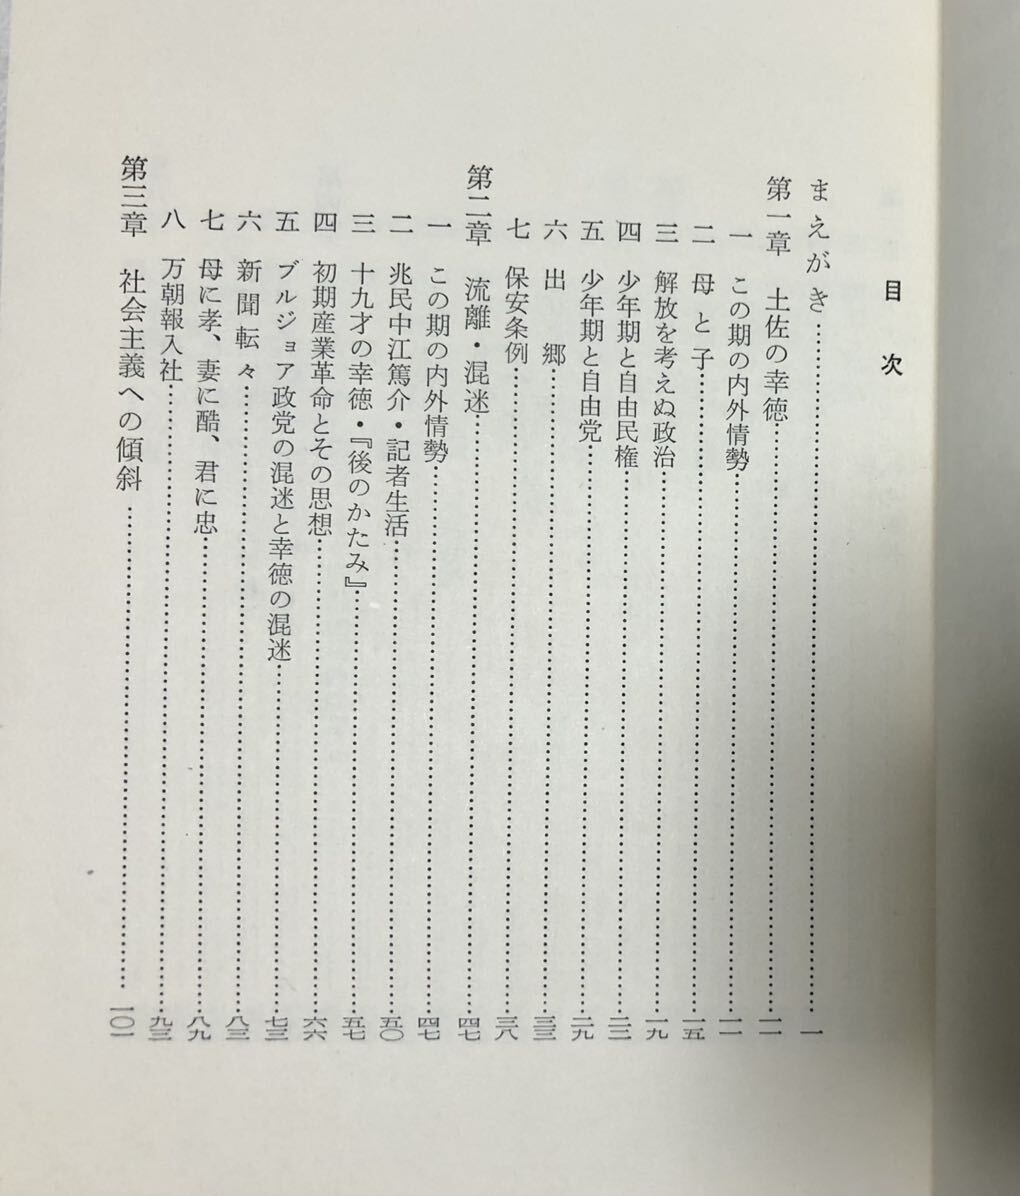 目次
まえがき……一
第一章 土佐の幸徳……一一
一 この期の内外情勢……一一
二 母と子……一五
三 解放を考えぬ政治……一九
四 少年期と自由民権……二二
五 少年期と自由党……二九
六 出郷……三三
七 保安条例……三八
第二章 流離・混迷……四七
一 この期の内外情勢……四七
二 兆民中江篤介・記者生活……五〇
三 十九才の幸徳・『後のかたみ』……五七
四 初期産業革命とその思想……六六
五 ブルジョア政党の混迷と幸徳の混迷……七三
六 新聞転々……八三
七 母に孝、妻に酷、君に忠……八九
八 万朝報入社……九三
第三章 社会主義への傾斜……一〇一